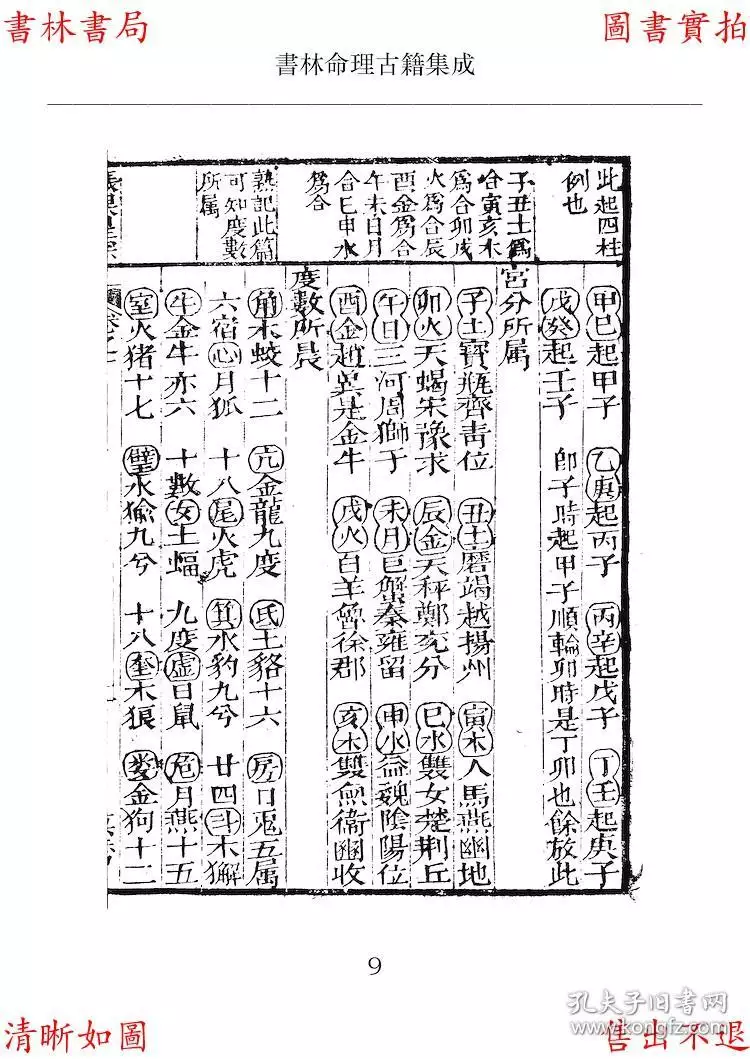 書林書局
圖書實拍
書林命理古籍集成
此起四柱
例也
子丑土爲
合寅亥木
爲合卯戌
火爲合辰
酉金爲合
午未日月
合巳申水
爲合
熟記此篇
可知度數
所属
甲巳起甲子 乙庚起丙子 丙辛起戊子 丁壬起庚子
戊癸起壬子 即子時起甲子順輪卯時是丁卯也餘放此
宮分所属
子土寶瓶齊青位 丑土磨竭越揚州 寅木人馬燕幽地
卯火天蝎宋豫求 辰金天秤鄭兖分 巳水雙女楚荆丘
午日三河周獅子 未月巨蟹秦雍留 申水益魏陰陽位
酉金趙冀是金牛 戌火白羊魯徐郡 亥木雙魚衞幽收
度數所屬
角木蛟十二 亢金龍九度 氐土貉十六 房日兎五属
六宿心月狐 十八尾火虎 箕水豹九兮 廿四斗木獬
牛金牛亦六 十數女土蝠 九度虚日鼠 危月燕十五
室火猪十七 壁水㺄九兮 十八奎木狼 婁金狗十二
9
孔夫子旧书网
www.kongfz.com
清晰如圖
售出不退